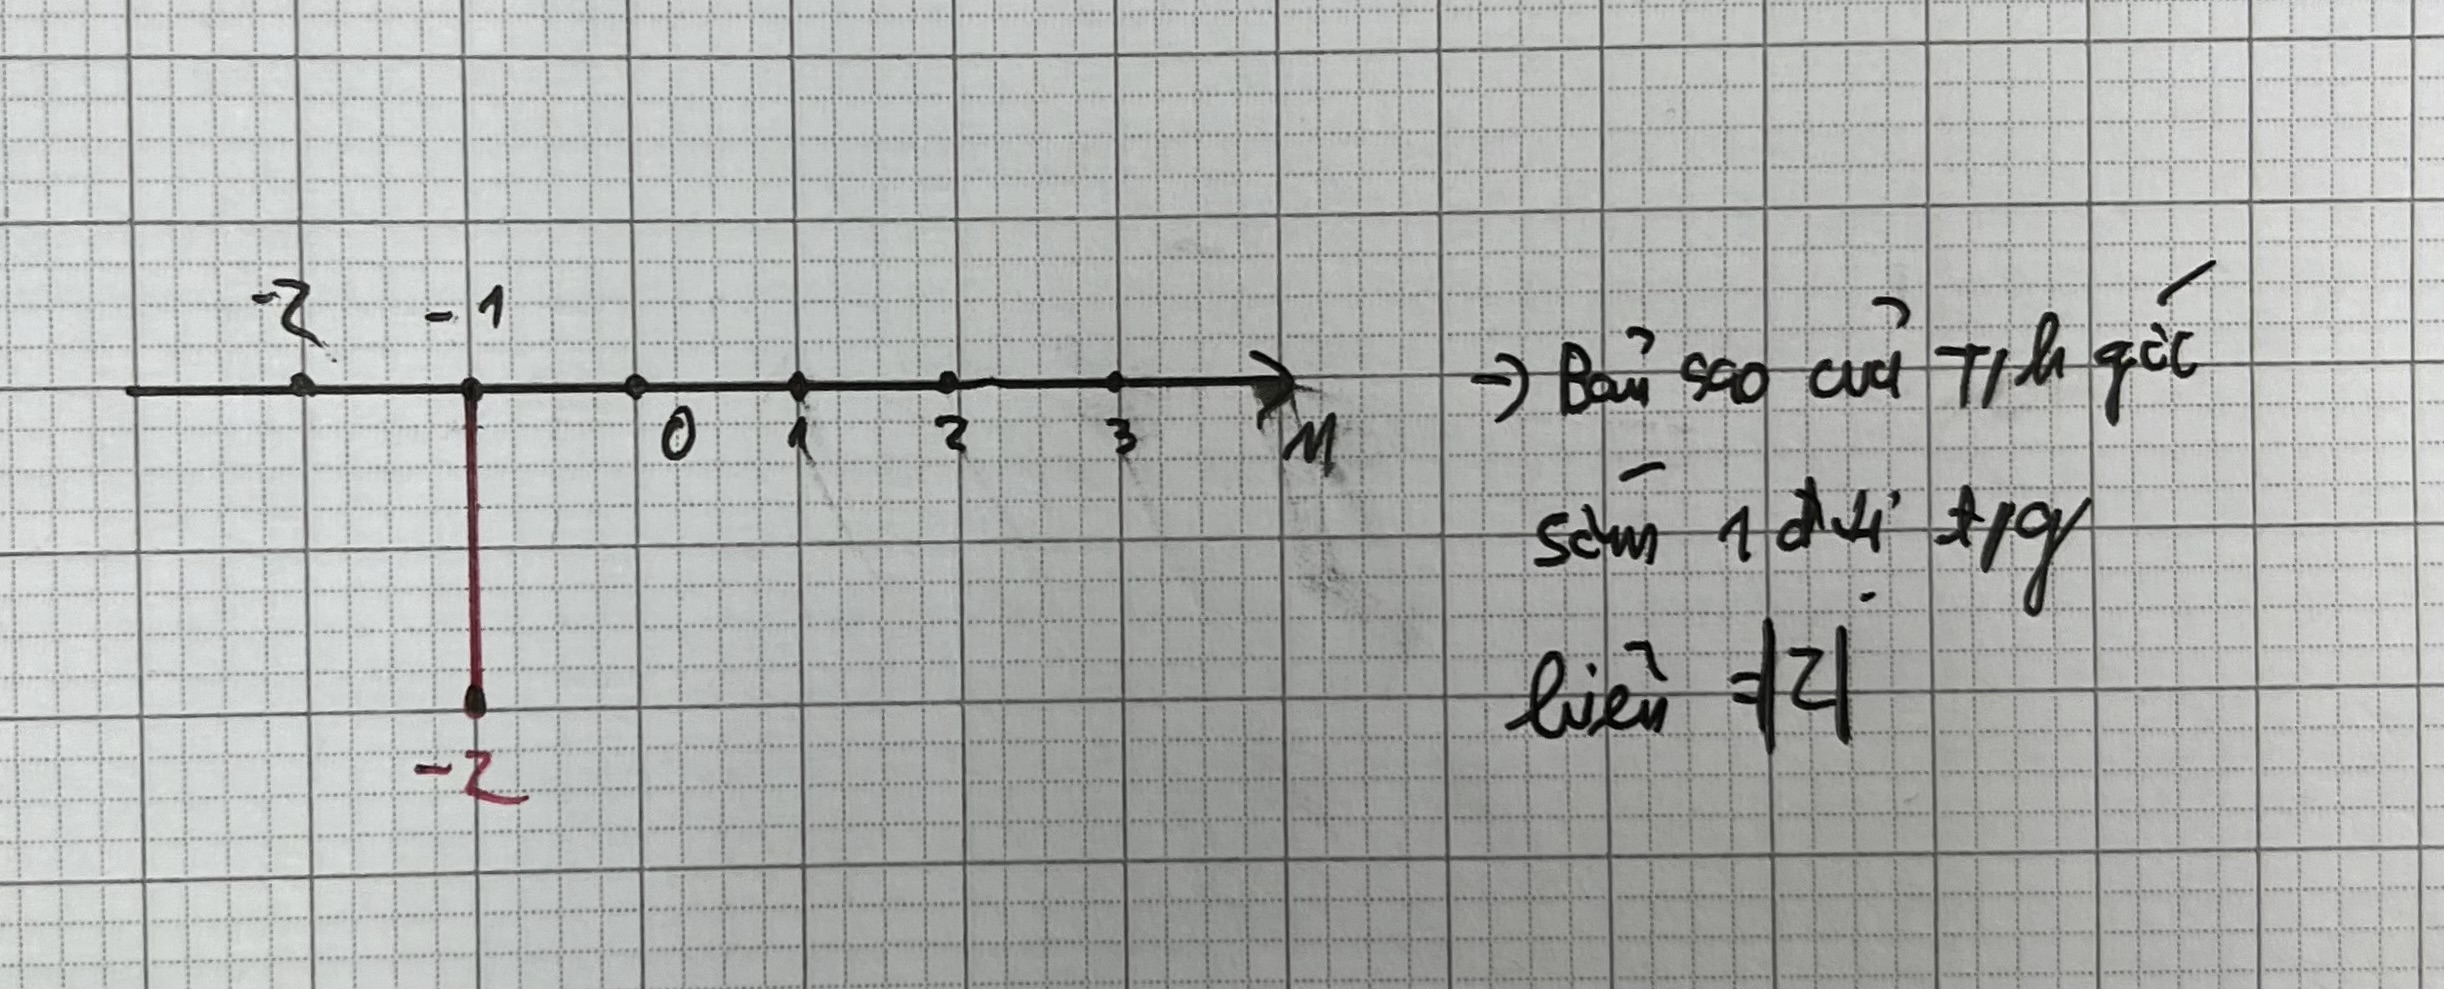 -2 -1
0 1 2 3 n
-2
→ Bản sao của T/h gốc
sớm 1 đvị t/g
biên = |2|